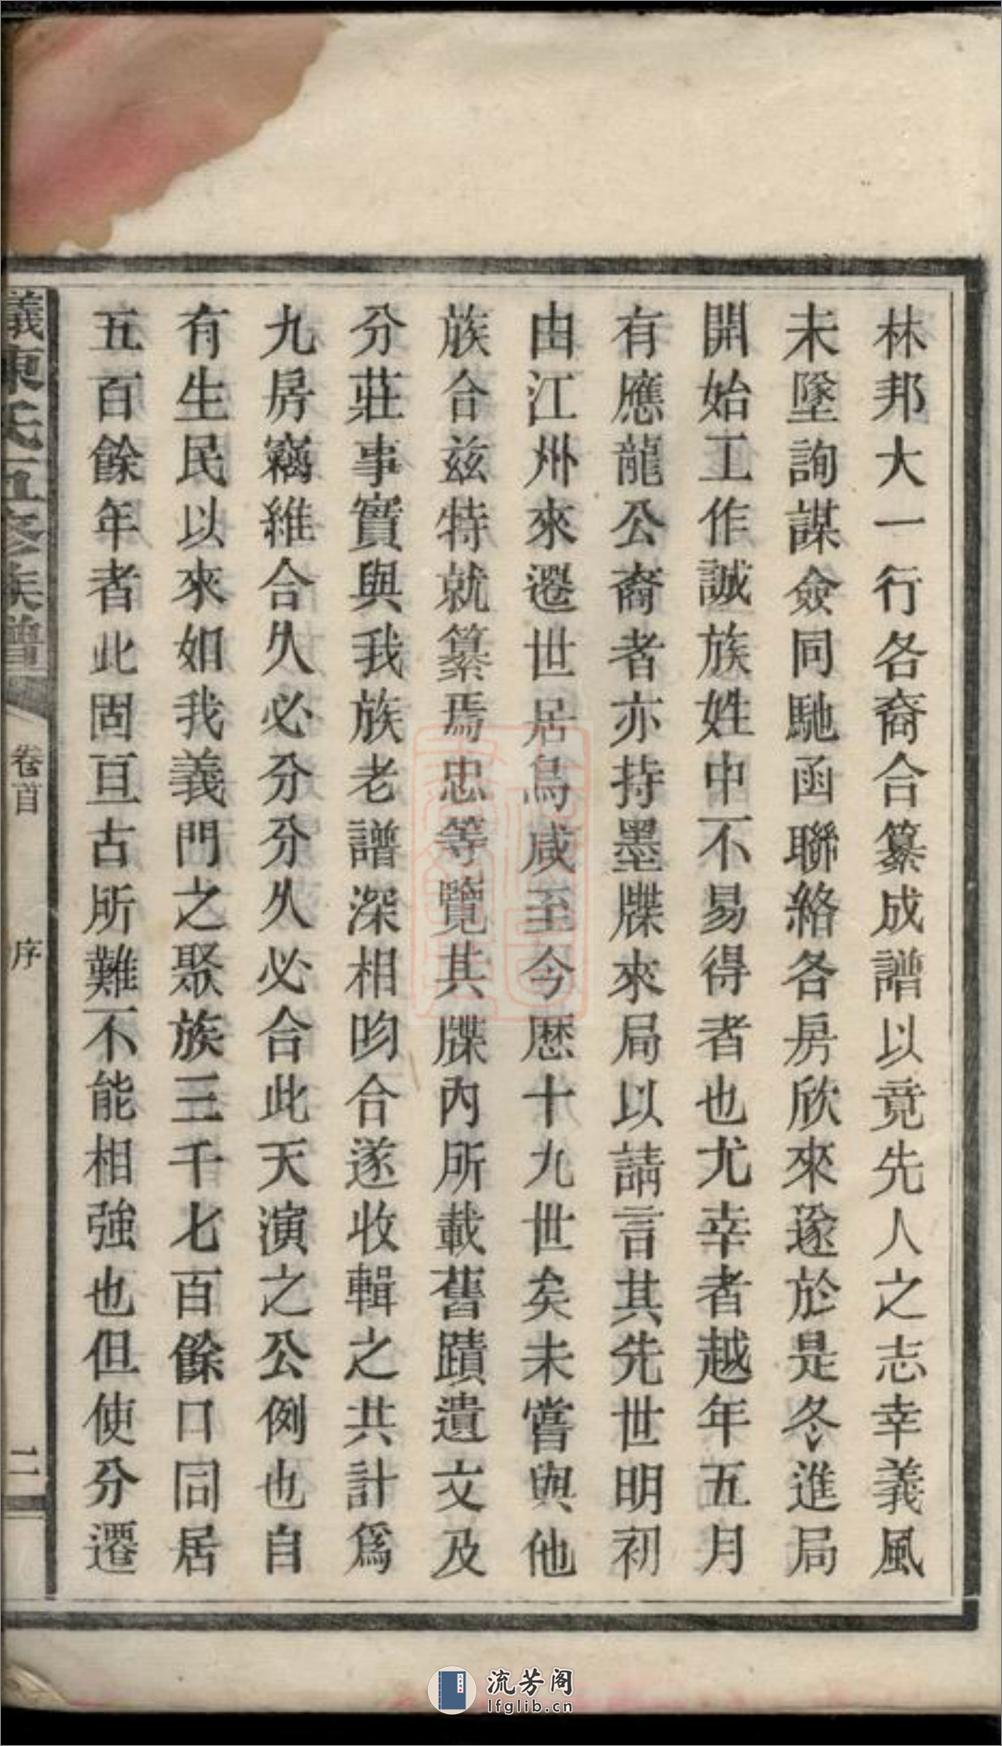 林邦大一行各裔合纂成譜以竟先人之志幸義風
未墜詢謀僉同馳函聯絡各房欣來遂於是冬進局
開始工作誠族姓中不易得者也尤幸者越年五月
有應龍公裔者亦持墨牒來局以請言其先世明初
由江州來遷世居烏咸至今歷十九世矣未嘗與他
族合茲特就纂焉忠等覽其牒內所載舊蹟遺文及
分莊事實與我族老譜深相吻合遂收輯之共計為
九房竊維合久必分分久必合此天演之公例也自
有生民以來如我義門之聚族三千七百餘口同居
五百餘年者此固亘古所難不能相強也但使分遷
陳氏五修族譜
卷首
序
二
流芳阁
lfglib.cn